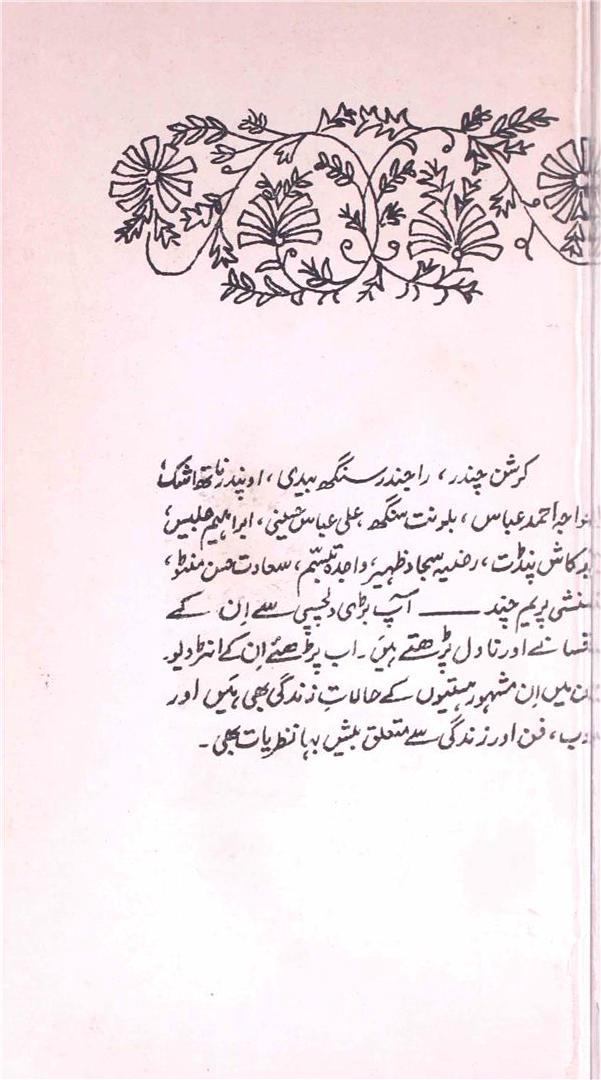 کرشن چندر، راجندر سنگھ بیدی، اوپندر ناتھ اشک،
احمد عباس، بلونت سنگھ، علی عباس حسینی، ابراہیم جلیس،
پنڈت، رضیہ سجاد ظہیر، واجدہ تبسّم، سعادت حسن منٹو،
منشی پریم چند —— آپ بڑی دلچسپی سے اِن کے
اور ناول پڑھتے ہیں۔ اب پڑھئے اِن کے انٹرویو
میں اِن مشہور ہستیوں کے حالاتِ زندگی بھی ہیں اور
، فن اور زندگی سے متعلق بیش بہا نظریات بھی۔